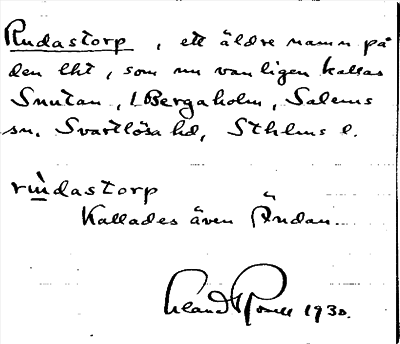 Rudastorp, ett äldre namn på
den lht, som nu vanligen kallas
Snutan, / Bergaholm, Salems
sn. Svartlösa hd, Sthlms l.
rùdastorp
Kallades även Ändan.
Erland Rosell 1930.